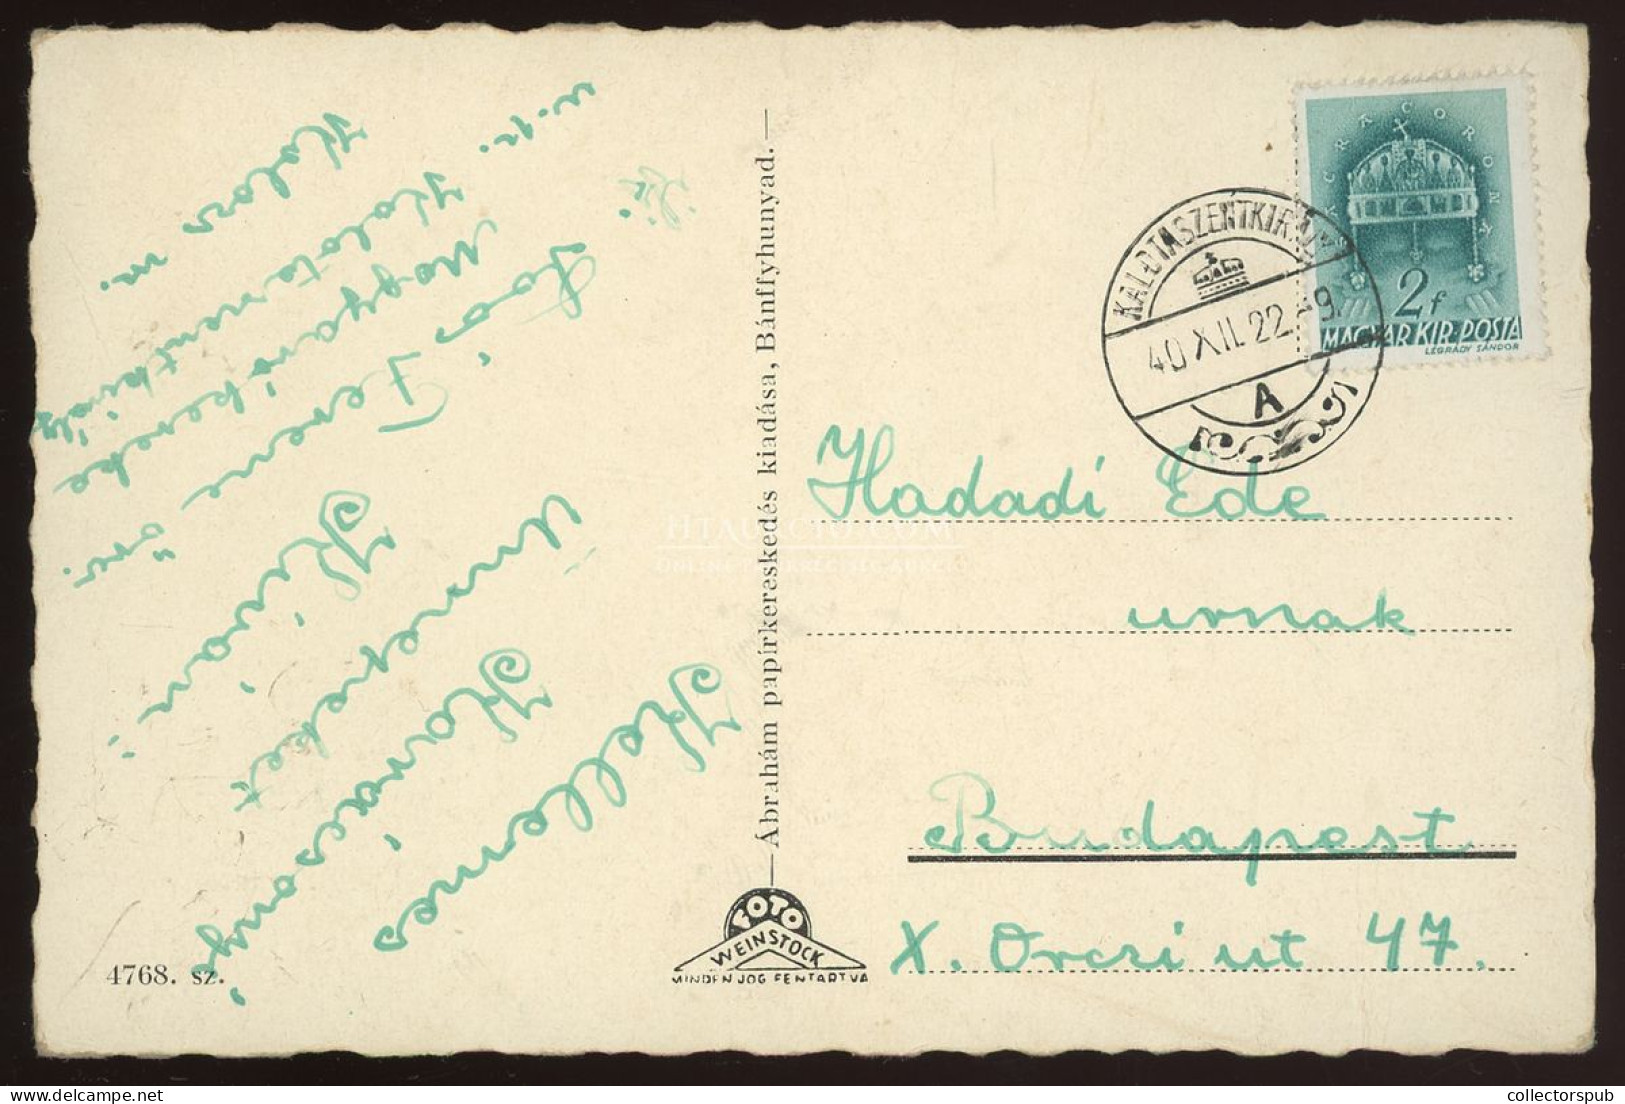 Kellemes
Karácsonyi
Ünnepeket
Kíván
Joó Ferenc örv.
Magyarókereke
Kalotaszentkirály
u. p.
Kolozs m.
4768. sz.
Ábrahám papírkereskedés kiadása, Bánffyhunyad.
FOTO
WEINSTOCK
MINDEN JOG FENTARTVA
SACRA CORONA
2 f
MAGYAR KIR. POSTA
LÉGRÁDY SÁNDOR
KALOTASZENTKIRÁLY
40 XII. 22 -19
A
Hadadi Ede
urnak
Budapest
X. Orczi ut 47.
HTAUCTIO.COM
collectorspub